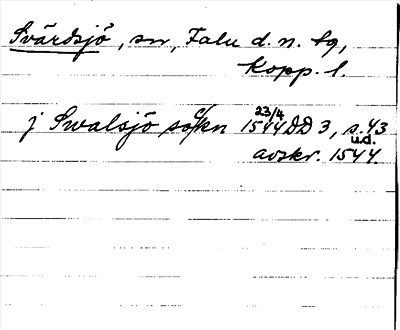 Svärdsjö, sn, Falu d. n. tg,
Kopp. l.
j Swalsjö sokn 1544 23/4 DD 3, s. 43
u.d.
avskr. 1544.